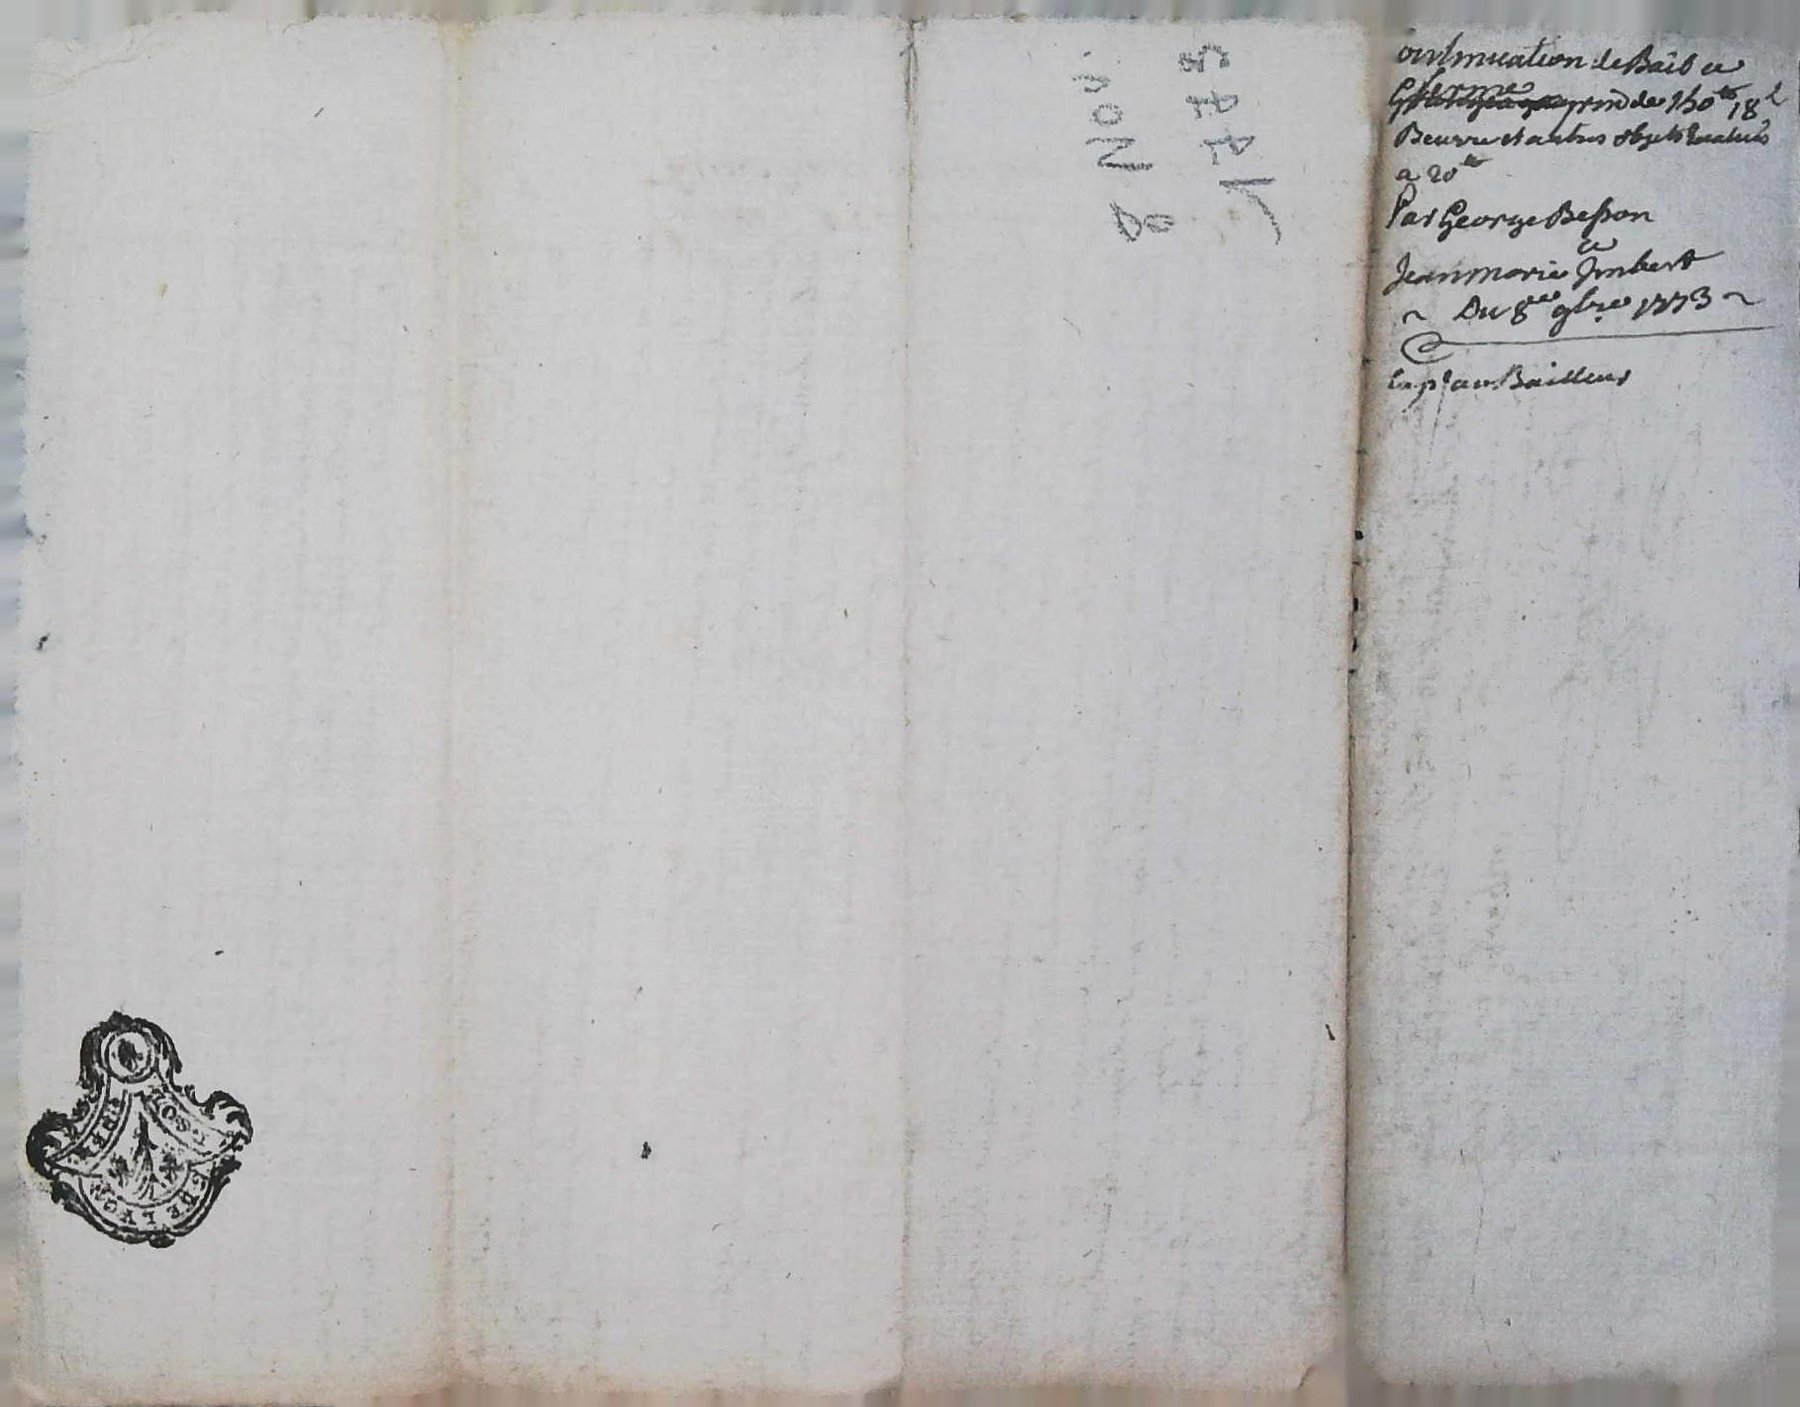 ontinuation de Bail a
fermes prix de 150tt 18l
Beurre et autres objets Evalués
a 20tt
Par George Besson
a
Jean marie Imbert
~ Du 8e 9bre 1773 ~
Exp. au Bailleur
8 Nov.
1773
GNRE LYON